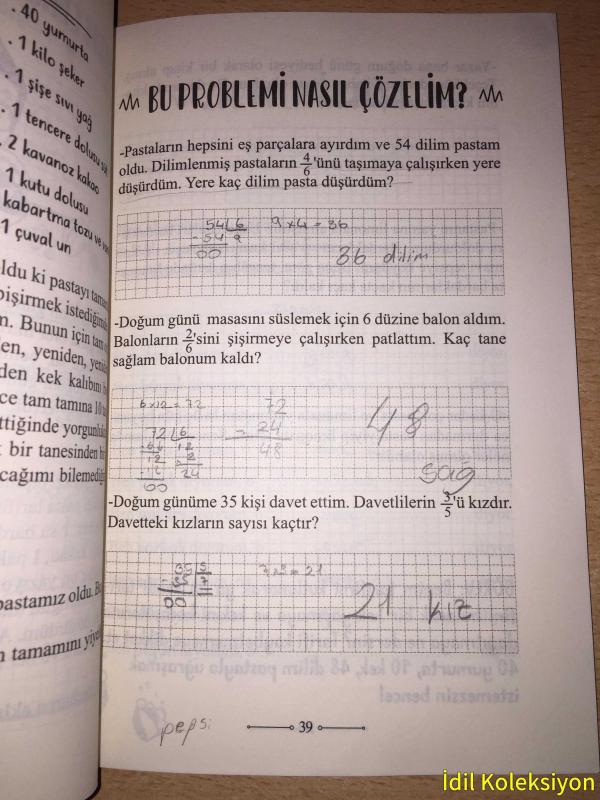 . 40 yumurta
. 1 kilo şeker
. 1 şişe sıvı yağ
. 1 tencere dolusu
. 2 kavanoz kakao
1 kutu dolusu
kabartma tozu ve
1 çuval un
ldu ki pastayı
bişirmek istediğim
n. Bunun için tam
en, yeniden,
den kek kalıbını
ce tam tamına 10
ttiğinde
bir tanesinden
cağımı bilemediğ
pastamız oldu.
n tamamını
BU PROBLEMİ NASIL ÇÖZELİM?
-Pastaların hepsini eş parçalara ayırdım ve 54 dilim pastam
oldu. Dilimlenmiş pastaların 4/6'ünü taşımaya çalışırken yere
düşürdüm. Yere kaç dilim pasta düşürdüm?
54 6 9x4=36
-54 9
00
36 dilim
-Doğum günü masasını süslemek için 6 düzine balon aldım.
Balonların 2/6'sini şişirmeye çalışırken patlattım. Kaç tane
sağlam balonum kaldı?
6x12=72
72
- 24
48
72 6
12
24
00
48
sağ
-Doğum günüme 35 kişi davet ettim. Davetlilerin 3/5'ü kızdır.
Davetteki kızların sayısı kaçtır?
35 5
-35 7
00
7x3=21
21 kız
pepsi
39
İdil Koleksiyon